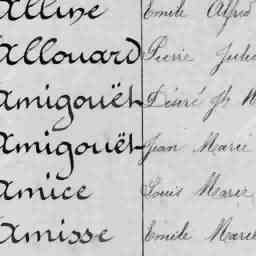 Alline Emile Alfred
Allouard Pierre Jules
Amigouët Désiré
Amigouët Jean Marie
Amice Louis Marie
Amisse Emile Marie